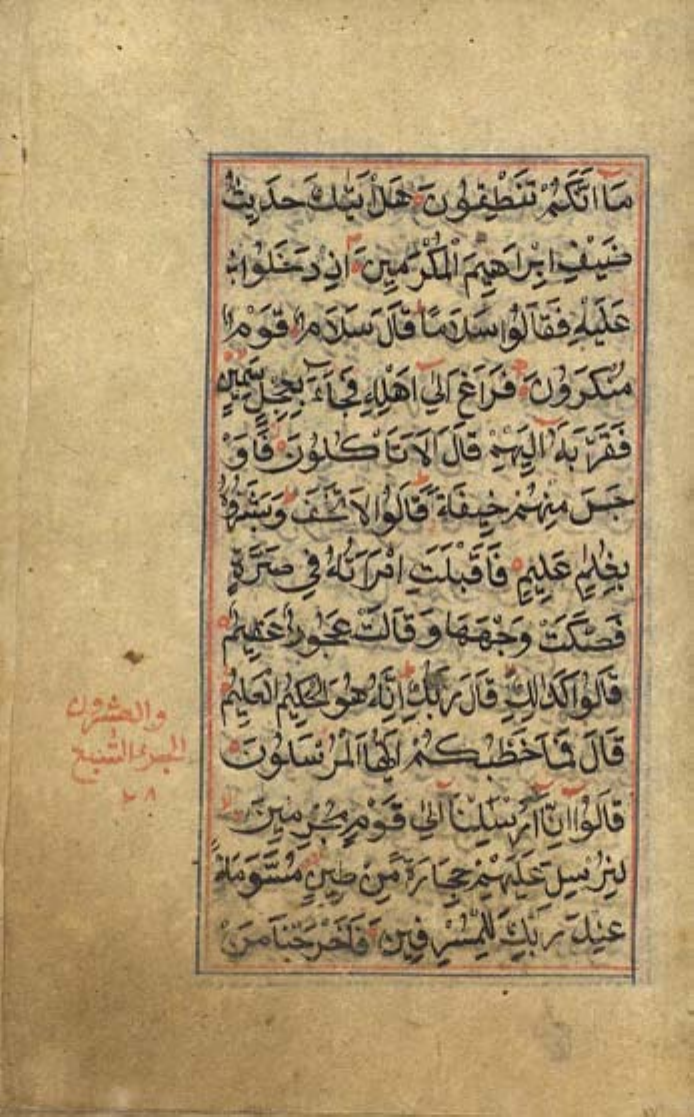 مَا اَنَّكُمْ تَنْطِقُونَ هَلْ اَتٰيكَ حَدِيثُ
ضَيْفِ اِبْرَاهِيمَ الْمُكْرَمِينَ اِذْ دَخَلُوا
عَلَيْهِ فَقَالُوا سَلَامًا قَالَ سَلَامٌ قَوْمٌ
مُنْكَرُونَ فَرَاغَ اِلٰى اَهْلِهِ فَجَاءَ بِعِجْلٍ سَمِينٍ
فَقَرَّبَهُ اِلَيْهِمْ قَالَ اَلَا تَاْكُلُونَ فَاَوْ
جَسَ مِنْهُمْ خِيفَةً قَالُوا لَا تَخَفْ وَبَشَّرُوهُ
بِغُلَامٍ عَلِيمٍ فَاَقْبَلَتِ امْرَاَتُهُ فِي صَرَّةٍ
فَصَكَّتْ وَجْهَهَا وَقَالَتْ عَجُوزٌ عَقِيمٌ
قَالُوا كَذٰلِكِ قَالَ رَبُّكِ اِنَّهُ هُوَ الْحَكِيمُ الْعَلِيمُ
قَالَ فَمَا خَطْبُكُمْ اَيُّهَا الْمُرْسَلُونَ
قَالُوا اِنَّا اُرْسِلْنَا اِلٰى قَوْمٍ مُجْرِمِينَ
لِنُرْسِلَ عَلَيْهِمْ حِجَارَةً مِنْ طِينٍ مُسَوَّمَةً
عِنْدَ رَبِّكَ لِلْمُسْرِفِينَ فَاَخْرَجْنَا مَنْ
والعشرون
الجزء السبع